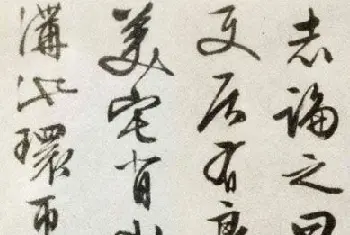 志論之曰
居有良
美宅背山
溝池環帀